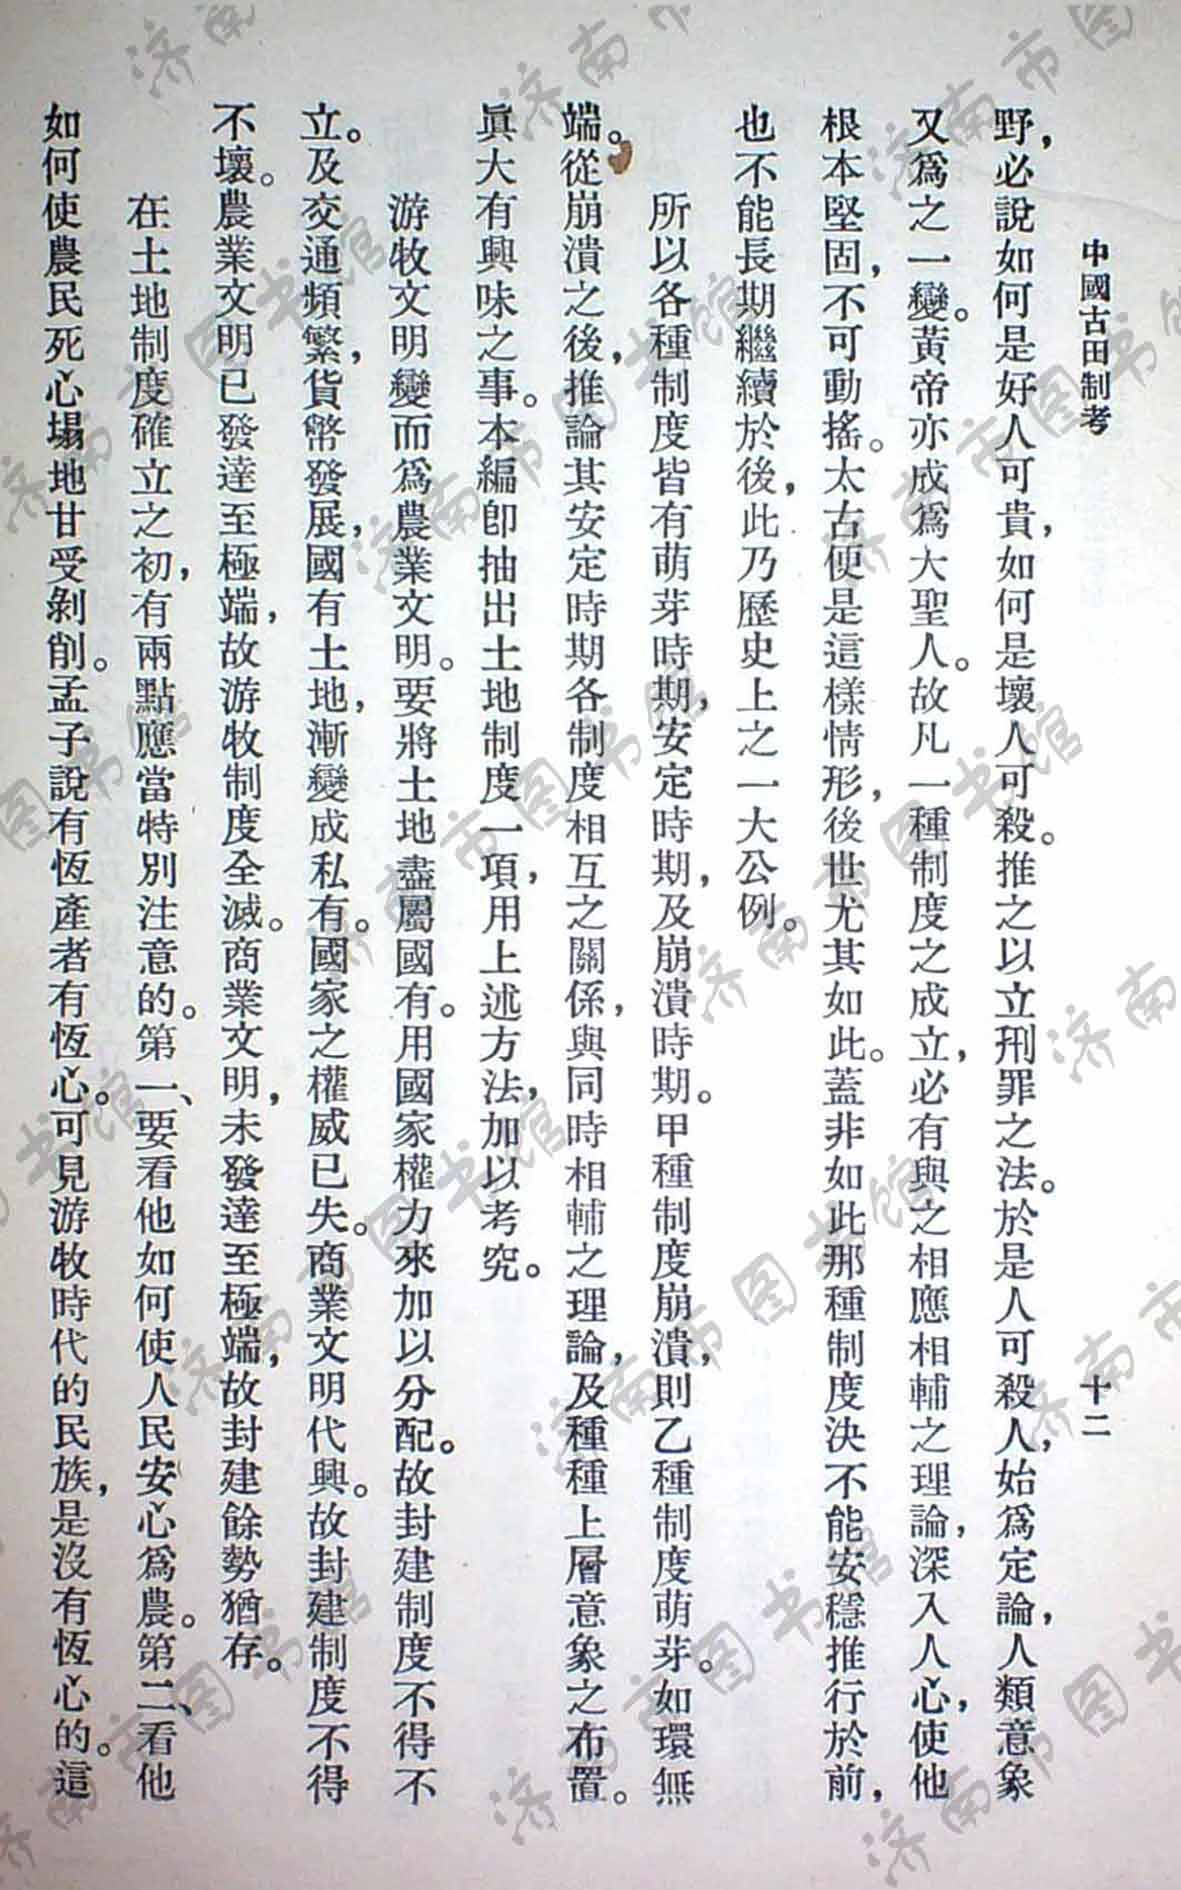 中國古田制考
十二
野，必說如何是好人可貴，如何是壞人可殺。推之以立刑罪之法。於是人可殺人，始爲定論，人類意象
又爲之一變。黃帝亦成爲大聖人。故凡一種制度之成立，必有與之相應相輔之理論，深入人心，使他
根本堅固，不可動搖。太古便是這樣情形，後世尤其如此。蓋非如此那種制度決不能安穩推行於前，
也不能長期繼續於後，此乃歷史上之一大公例。
所以各種制度皆有萌芽時期，安定時期，及崩潰時期。甲種制度崩潰，則乙種制度萌芽。如環無
端。從崩潰之後，推論其安定時期各制度相互之關係，與同時相輔之理論，及種種上層意象之布置。
眞大有興味之事。本編卽抽出土地制度一項，用上述方法，加以考究。
游牧文明變而爲農業文明。要將土地盡屬國有。用國家權力來加以分配。故封建制度不得不
立。及交通頻繁，貨幣發展，國有土地，漸變成私有。國家之權威已失。商業文明代興。故封建制度不得
不壞。農業文明已發達至極端，故游牧制度全滅。商業文明，未發達至極端，故封建餘勢猶存。
在土地制度確立之初，有兩點應當特別注意的。第一、要看他如何使人民安心爲農。第二、看他
如何使農民死心塌地甘受剝削。孟子說有恆產者有恆心。可見游牧時代的民族，是沒有恆心的。這
济南市图书馆